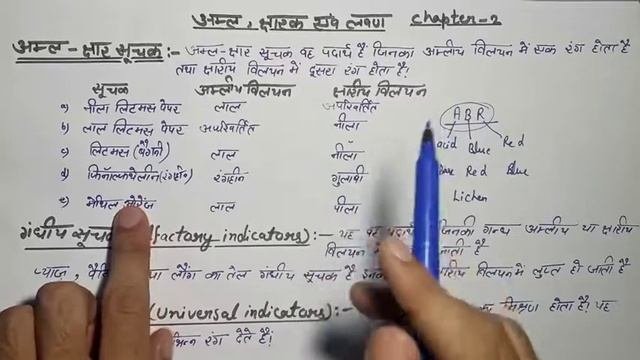 अम्ल, क्षारक एवं लवण chapter-2
अम्ल-क्षार सूचक :- अम्ल-क्षार सूचक वह पदार्थ है जिनका अम्लीय विलयन में एक रंग होता है
तथा क्षारीय विलयन में दूसरा रंग होता है!
सूचक अम्लीय विलयन क्षारीय विलयन
a) नीला लिटमस पेपर लाल अपरिवर्तित
b) लाल लिटमस पेपर अपरिवर्तित नीला
c) लिटमस (बैंगनी) लाल नीला
d) फिनॉल्फ्थेलीन (रंगहीन) रंगहीन गुलाबी
e) मेथिल ऑरेंज लाल पीला
ABR
Blue Red
Red Blue
Lichen
गंधीय सूचक (lfactory indicators) :- यह वह जिनका गन्ध अम्लीय या क्षारीय
विलयन में है
प्याज, लौंग का तेल गंधीय सूचक है विलयन में लुप्त हो जाती है
(Universal indicators) :- मिश्रण होता है! यह
रंग देते है!